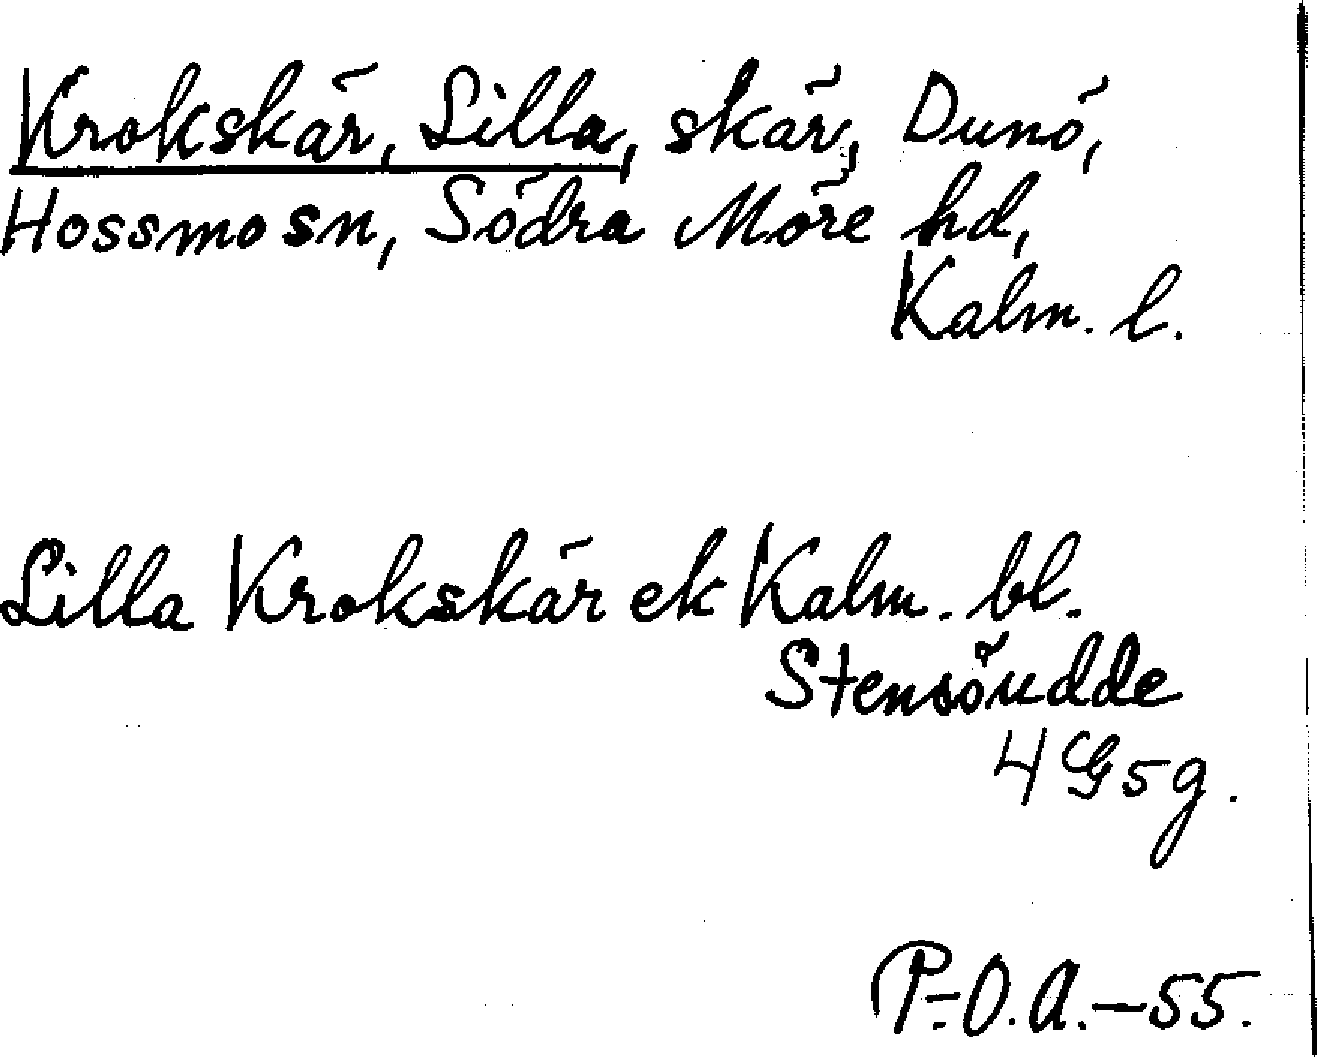 Krokskär, Lilla, skär, Dunö,
Hossmo sn, Södra Möre hd,
Kalm. l.
Lilla Krokskär ek Kalm. bl.
Stensöudde
4 G 5 g.
P.-O. A. – 55.